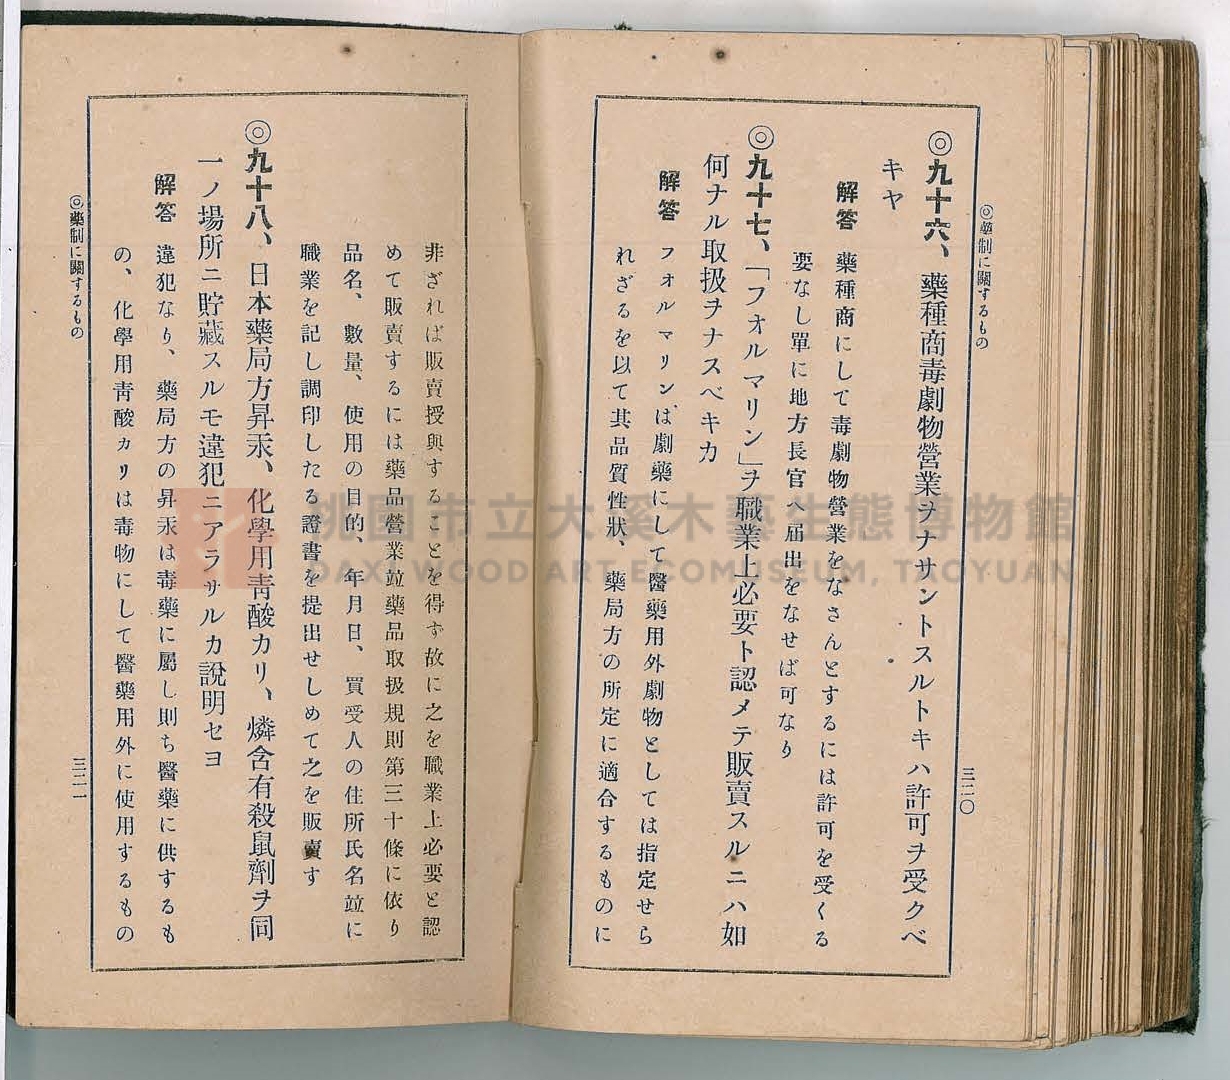 ◎藥制に關するもの
◎九十六、藥種商毒劇物營業ヲナサントスルトキハ許可ヲ受クベ
キヤ
解答 藥種商にして毒劇物營業をなさんとするには許可を受くる
要なし單に地方長官へ届出をなせば可なり
◎九十七、「フオルマリン」ヲ職業上必要ト認メテ販賣スルニハ如
何ナル取扱ヲナスベキカ
解答 フォルマリンは劇藥にして醫藥用外劇物としては指定せら
れざるを以て其品質性狀、藥局方の所定に適合するものに
三二〇
非ざれば販賣授與することを得ず故に之を職業上必要と認
めて販賣するには藥品營業竝藥品取扱規則第三十條に依り
品名、數量、使用の目的、年月日、買受人の住所氏名竝に
職業を記し調印したる證書を提出せしめて之を販賣す
◎九十八、日本藥局方昇汞、化學用靑酸カリ、燐含有殺鼠劑ヲ同
一ノ場所ニ貯藏スルモ違犯ニアラサルカ說明セヨ
解答 違犯なり、藥局方の昇汞は毒藥に屬し則ち醫藥に供するも
の、化學用靑酸カリは毒物にして醫藥用外に使用するもの
◎藥制に關するもの
三二一
桃園市立大溪木藝生態博物館
DAXI WOOD ART ECOMUSEUM, TAOYUAN